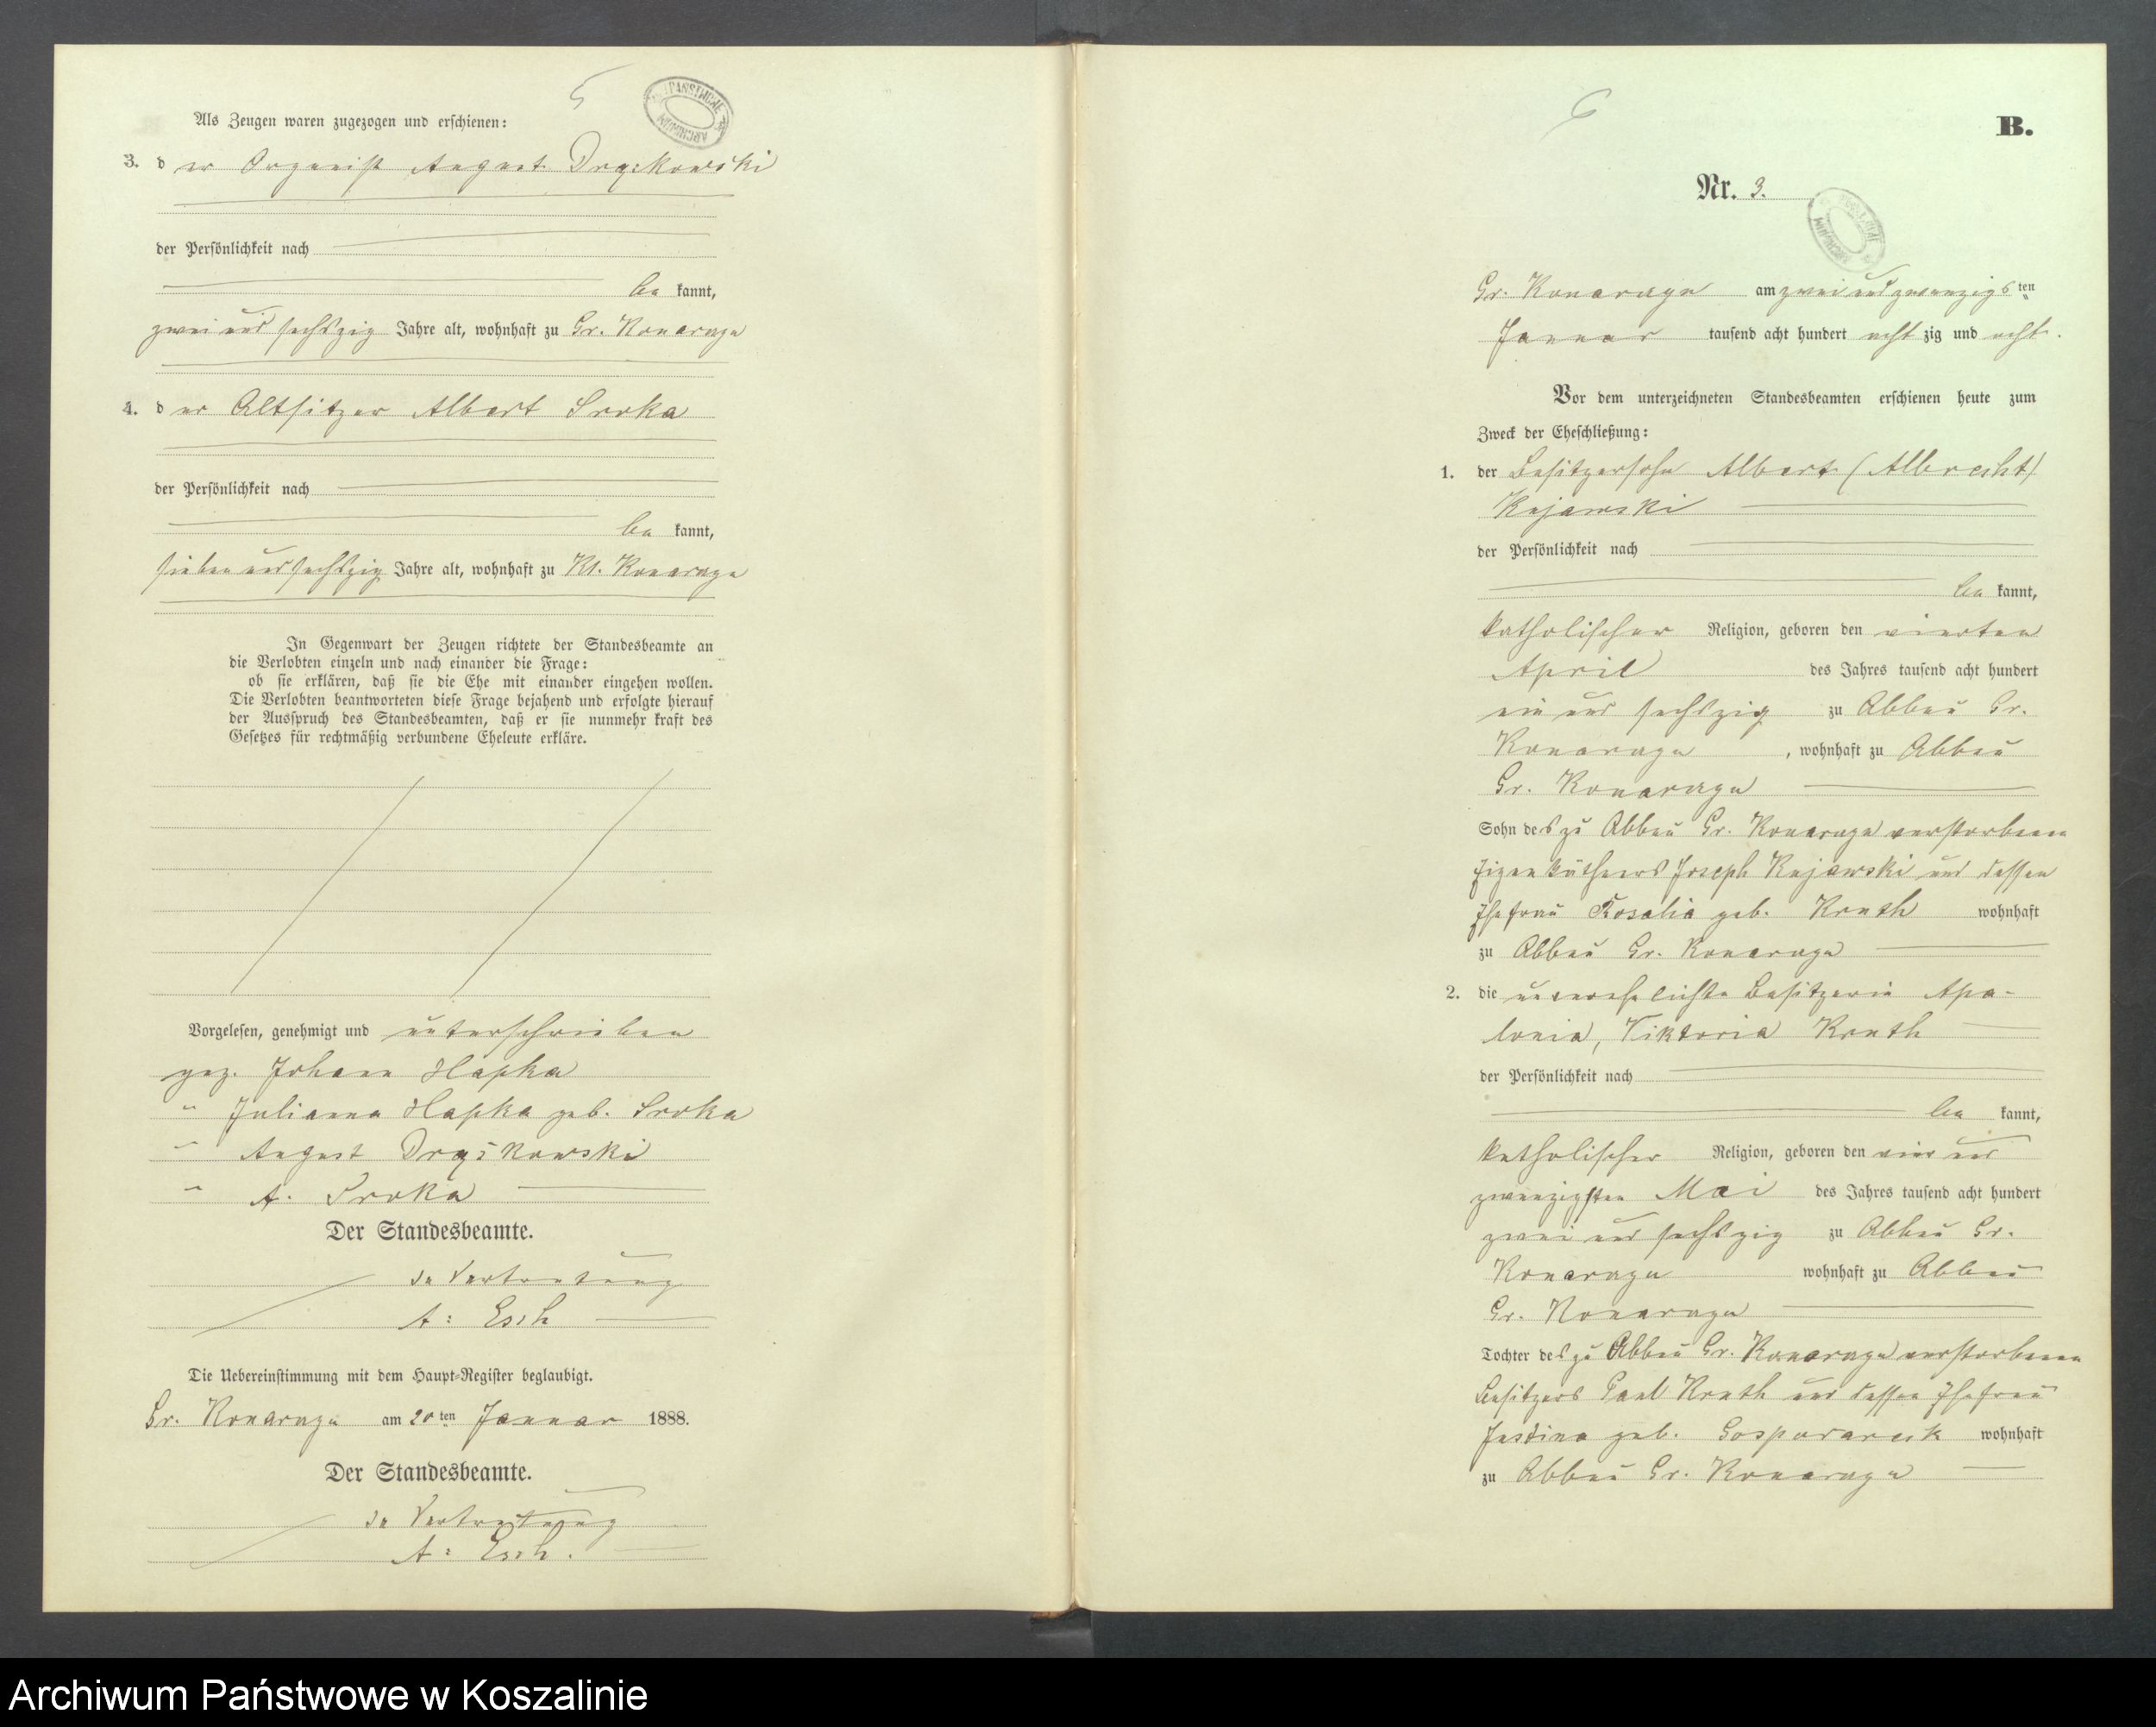 5
Als Zeugen waren zugezogen und erschienen:
3. d er Organist August Dryzkowski
der Persönlichkeit nach
be kannt,
zwei und sechszig Jahre alt, wohnhaft zu Gr. Konarzyn
4. d er Altsitzer Albert Sroka
der Persönlichkeit nach
be kannt,
sieben und sechszig Jahre alt, wohnhaft zu Kl. Konarzyn
In Gegenwart der Zeugen richtete der Standesbeamte an
die Verlobten einzeln und nach einander die Frage:
ob sie erklären, daß sie die Ehe mit einander eingehen wollen.
Die Verlobten beantworteten diese Frage bejahend und erfolgte hierauf
der Ausspruch des Standesbeamten, daß er sie nunmehr kraft des
Gesetzes für rechtmäßig verbundene Eheleute erkläre.
Vorgelesen, genehmigt und unterschrieben
gez. Johann Hapka
" Julianna Hapka geb. Sroka
" August Dryzkowski
" A. Sroka
Der Standesbeamte.
In Vertretung
A: Esch
Die Uebereinstimmung mit dem Haupt-Register beglaubigt.
Gr. Konarzyn am 20ten Januar 1888.
Der Standesbeamte.
In Vertretung
A: Esch.
6
B.
Nr. 3.
Gr. Konarzyn am zwei und zwanzigsten
Januar tausend acht hundert acht zig und acht.
Vor dem unterzeichneten Standesbeamten erschienen heute zum
Zweck der Eheschließung:
1. der Besitzersohn Albert (Albrecht)
Kujawski
der Persönlichkeit nach
be kannt,
katholischer Religion, geboren den vierten
April des Jahres tausend acht hundert
ein und sechszig zu Abbau Gr.
Konarzyn, wohnhaft zu Abbau
Gr. Konarzyn
Sohn des zu Abbau Gr. Konarzyn verstorbenen
Eigenkäthners Joseph Kujawski und dessen
Ehefrau Rosalia geb. Knuth wohnhaft
zu Abbau Gr. Konarzyn
2. die unverehelichte Besitzerin Apo-
lonia, Viktoria Knuth
der Persönlichkeit nach
be kannt,
katholischer Religion, geboren den vier und
zwanzigsten Mai des Jahres tausend acht hundert
zwei und sechszig zu Abbau Gr.
Konarzyn wohnhaft zu Abbau
Gr. Konarzyn
Tochter des zu Abbau Gr. Konarzyn verstorbenen
Besitzers Paul Knuth und dessen Ehefrau
Justina geb. wohnhaft
zu Abbau Gr. Konarzyn
Archiwum Państwowe w Koszalinie